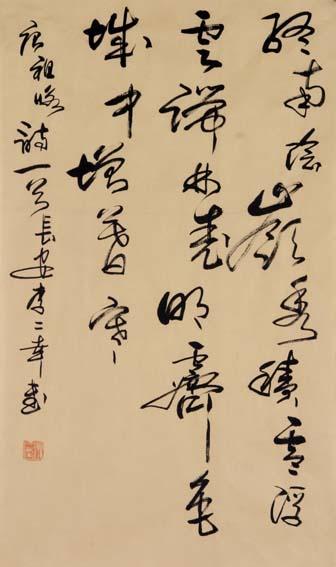 終南陰嶺秀積雪浮
雲端林表明霽色
城中增暮寒
唐祖咏詩一首長安李二幸書